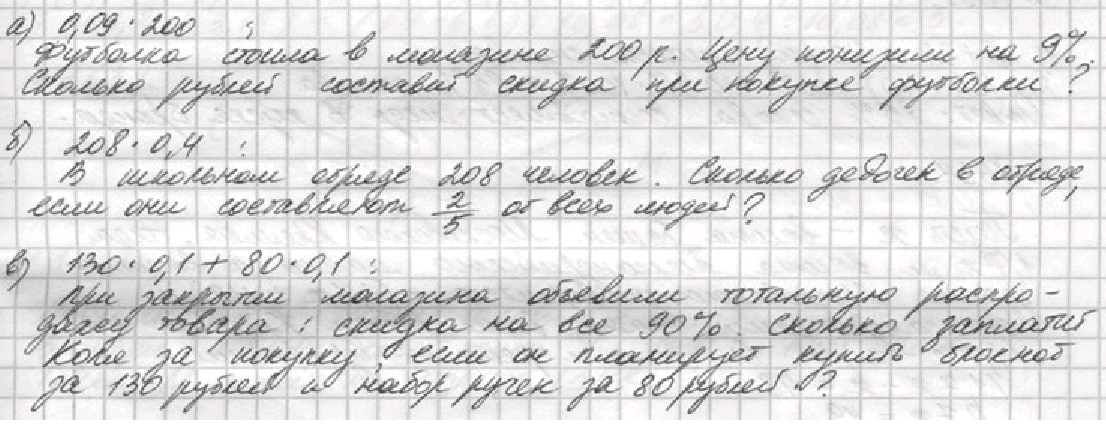 а) 0,09 · 200 :
Футболка стоила в магазине 200 р. Цену понизили на 9%.
Сколько рублей составит скидка при покупке футболки?
б) 208 · 0,4 :
В школьном отряде 208 человек. Сколько девочек в отряде,
если они составляют 2/5 от всех людей?
в) 130 · 0,1 + 80 · 0,1 :
При закрытии магазина объявили тотальную распро-
дажу товара : скидка на все 90%. Сколько заплатит
Коля за покупку, если он планирует купить блокнот
за 130 рублей и набор ручек за 80 рублей ?